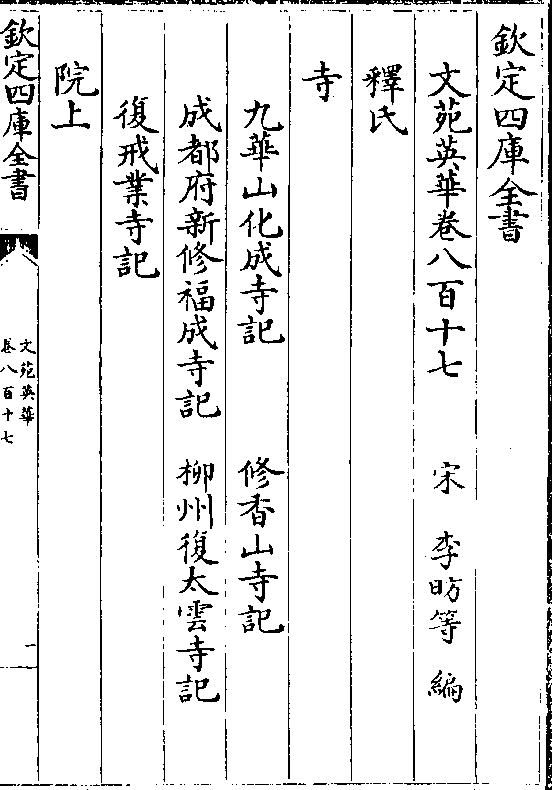 欽定四庫全書
文苑英華卷八百十七 宋 李昉等 編
釋氏
寺
九華山化成寺記 修香山寺記
成都府新修福成寺記 柳州復太雲寺記
復戒業寺記
院上
欽定四庫全書
文苑英華
卷八百十七
一